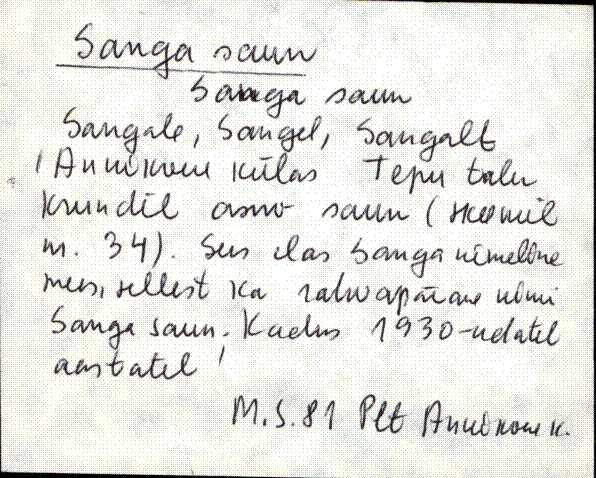 Sanga saun
Sanga saun
Sangale, Sangel, Sangalt
'Annikoru külas Tepu talu
krundil asuv saun (skeemil
nr. 34). Ses elas Sanga nimeline
mees, sellest ka rahvapärane nimi
Sanga saun. Kadus 1930-ndatel
aastatel'
M.S. 81 Plt Annikoru k.